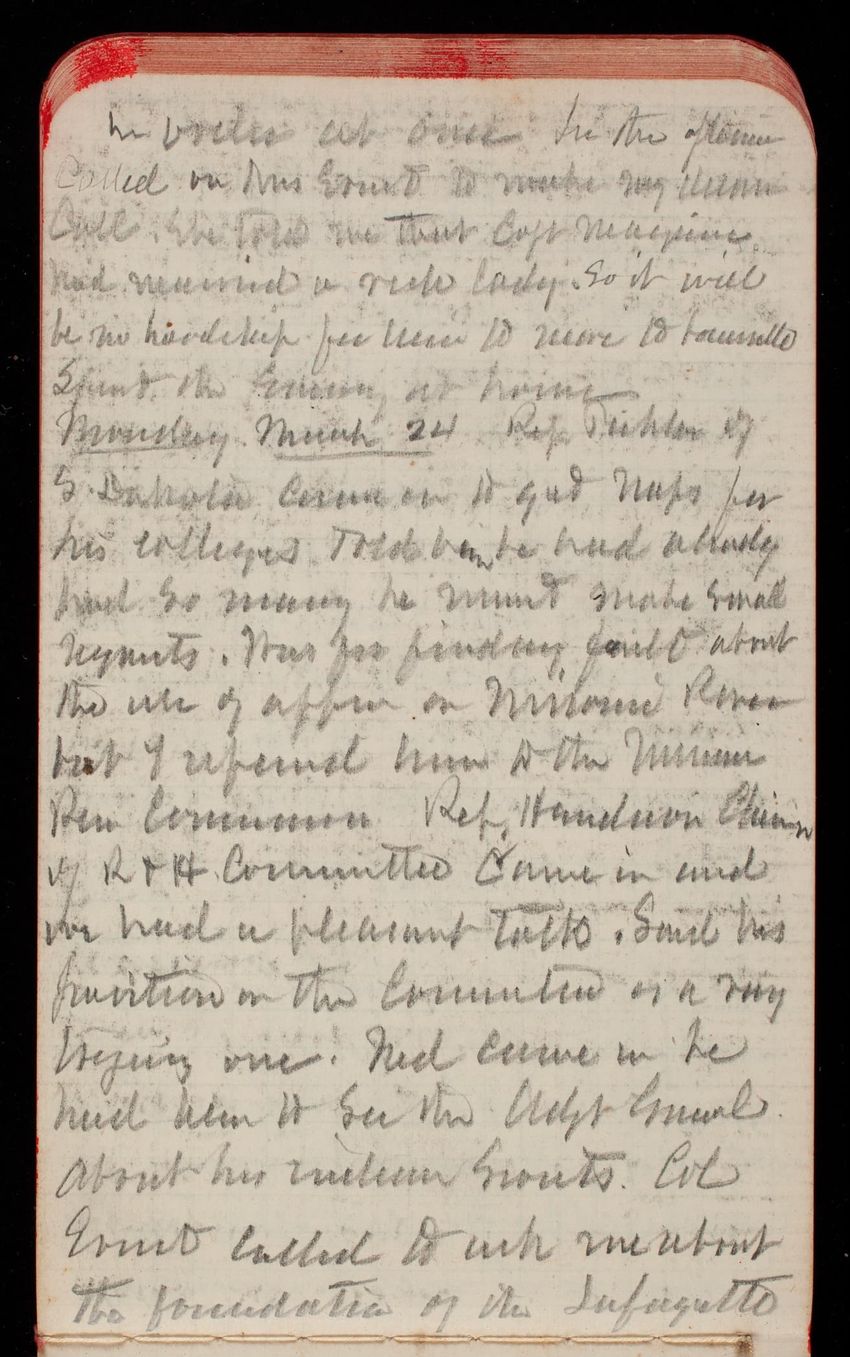 orders at once In the afternoon
Called on Mrs Ernst to make my
Call. She told me that Capt
had married a rich lady. So it will
be no hardship for him to move to
Spent the Evening at home
Monday March 24 Rep Pickler of
S. Dakota came in to get maps for
his colleages. Told him he had already
had so many he must make small
requests. Was for finding fault about
the use of on Missouri River
but I referred him to the Missouri
Riv Commission Rep. Henderson Chairmn
of R & H Committee Came in and
we had a pleasant talk. Said his
position on the Committee is a very
trying one. Ned came in he
had been to See the Adjt General
about his indian Scouts. Col
Ernst called to ask me about
the foundation of the Lafayette